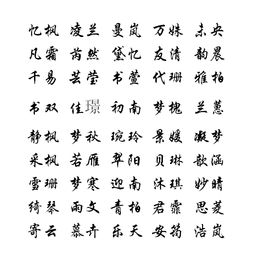 忆枫 凌兰 曼岚 万姝 未央
凡霜 芮然 黛忆 友清 韵晨
千易 芸莹 书萱 代珊 雅柏
书双 佳璟 初南 梦槐 兰蕙
静枫 梦秋 琬玲 景媛 凝梦
采枫 若雁 翠阳 贝琳 歆涵
雪珊 梦寒 迎南 沐琪 妙晴
绮琴 雨文 青柏 君霏 思菱
寄云 慕卉 乐天 安筠 浩岚